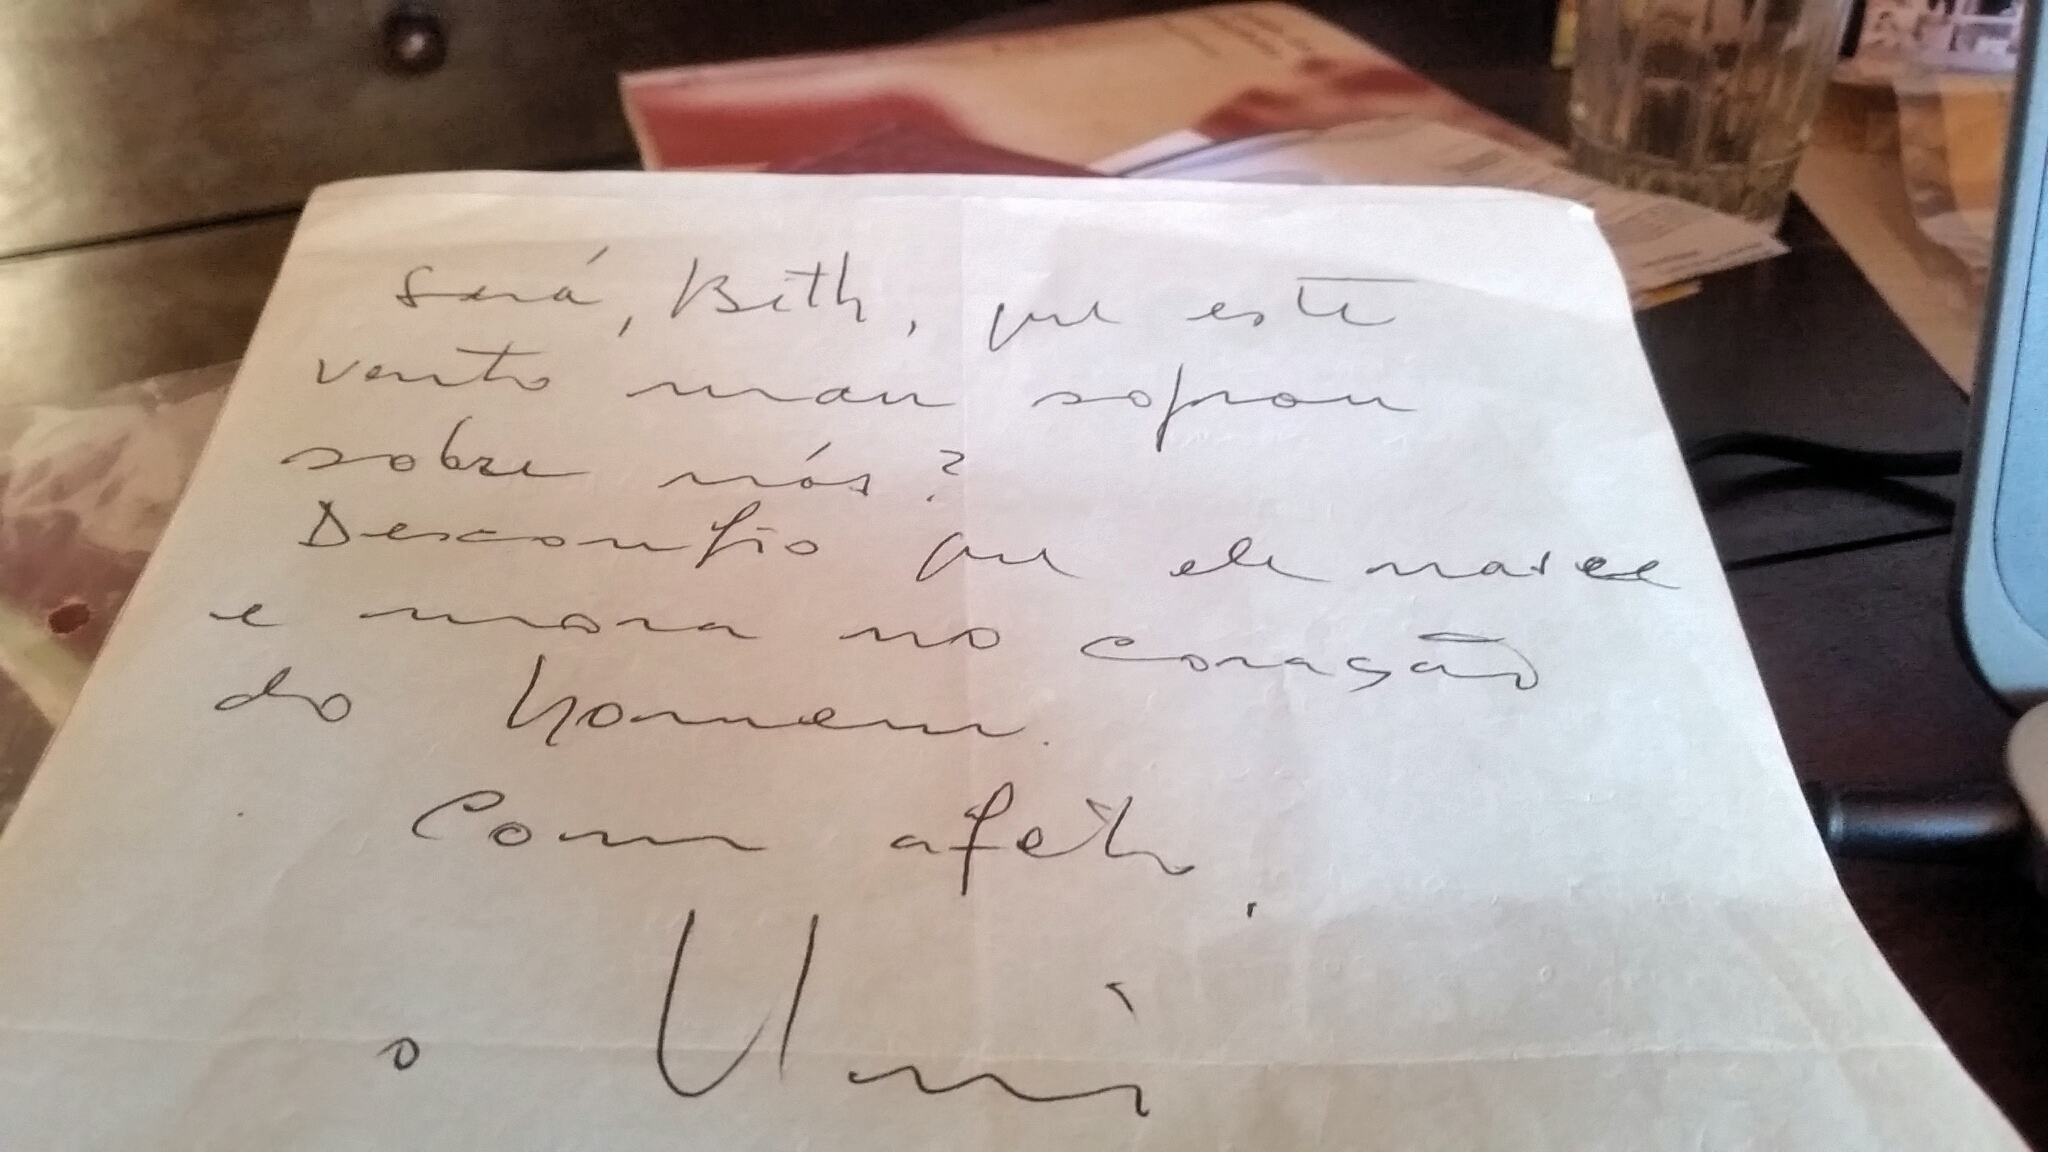 Será, Beth, que este
vento mau soprou
sobre nós?
Desconfio que ele nasce
e mora no coração
do homem.
Com afeto,
o